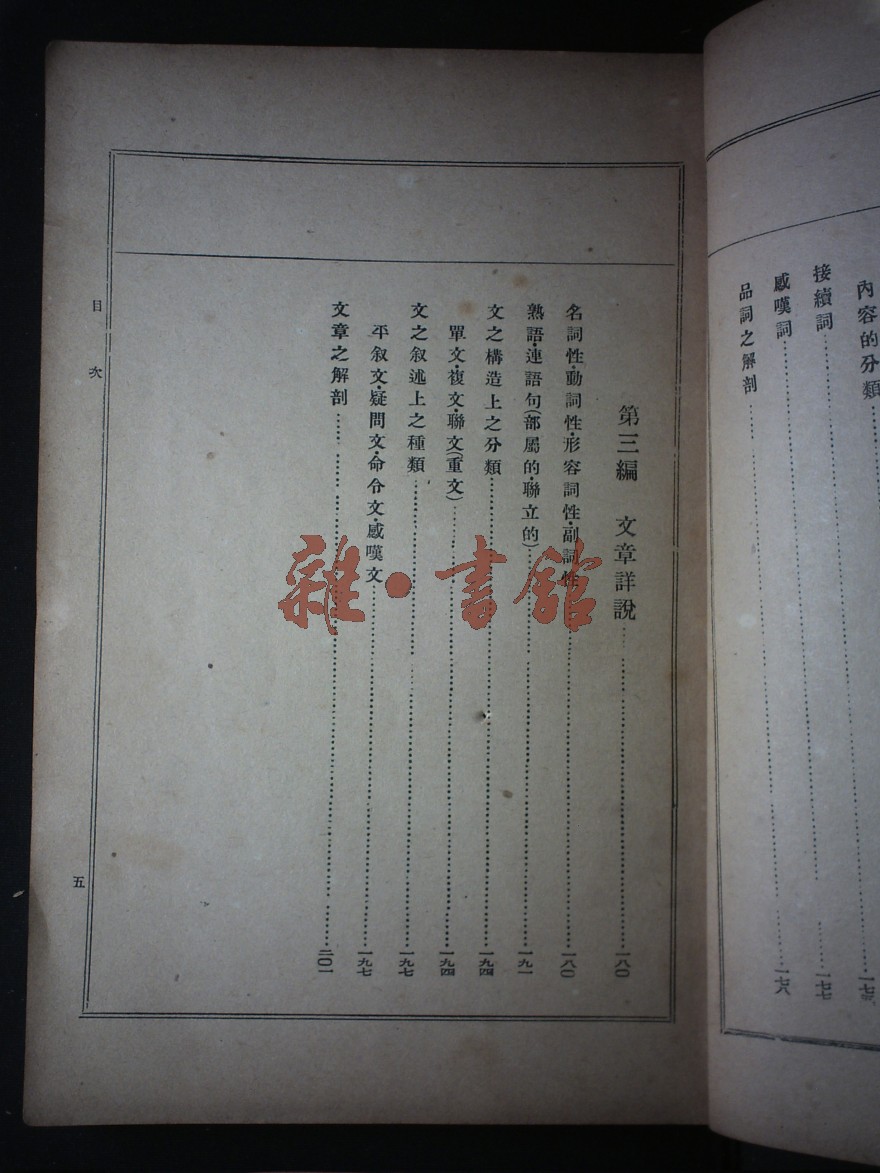 內容的分類
接續詞 一七七
感嘆詞 一七六
品詞之解剖
第三編 文章詳說 一八〇
名詞性·動詞性·形容詞性·副詞性 一八〇
熟語·連語句(部屬的·聯立的) 一九一
文之構造上之分類 一九四
單文·複文·聯文(重文) 一九四
文之叙述上之種類 一九七
平叙文·疑問文·命令文·感嘆文 一九七
文章之解剖 二〇一
目次
五
雜·書館